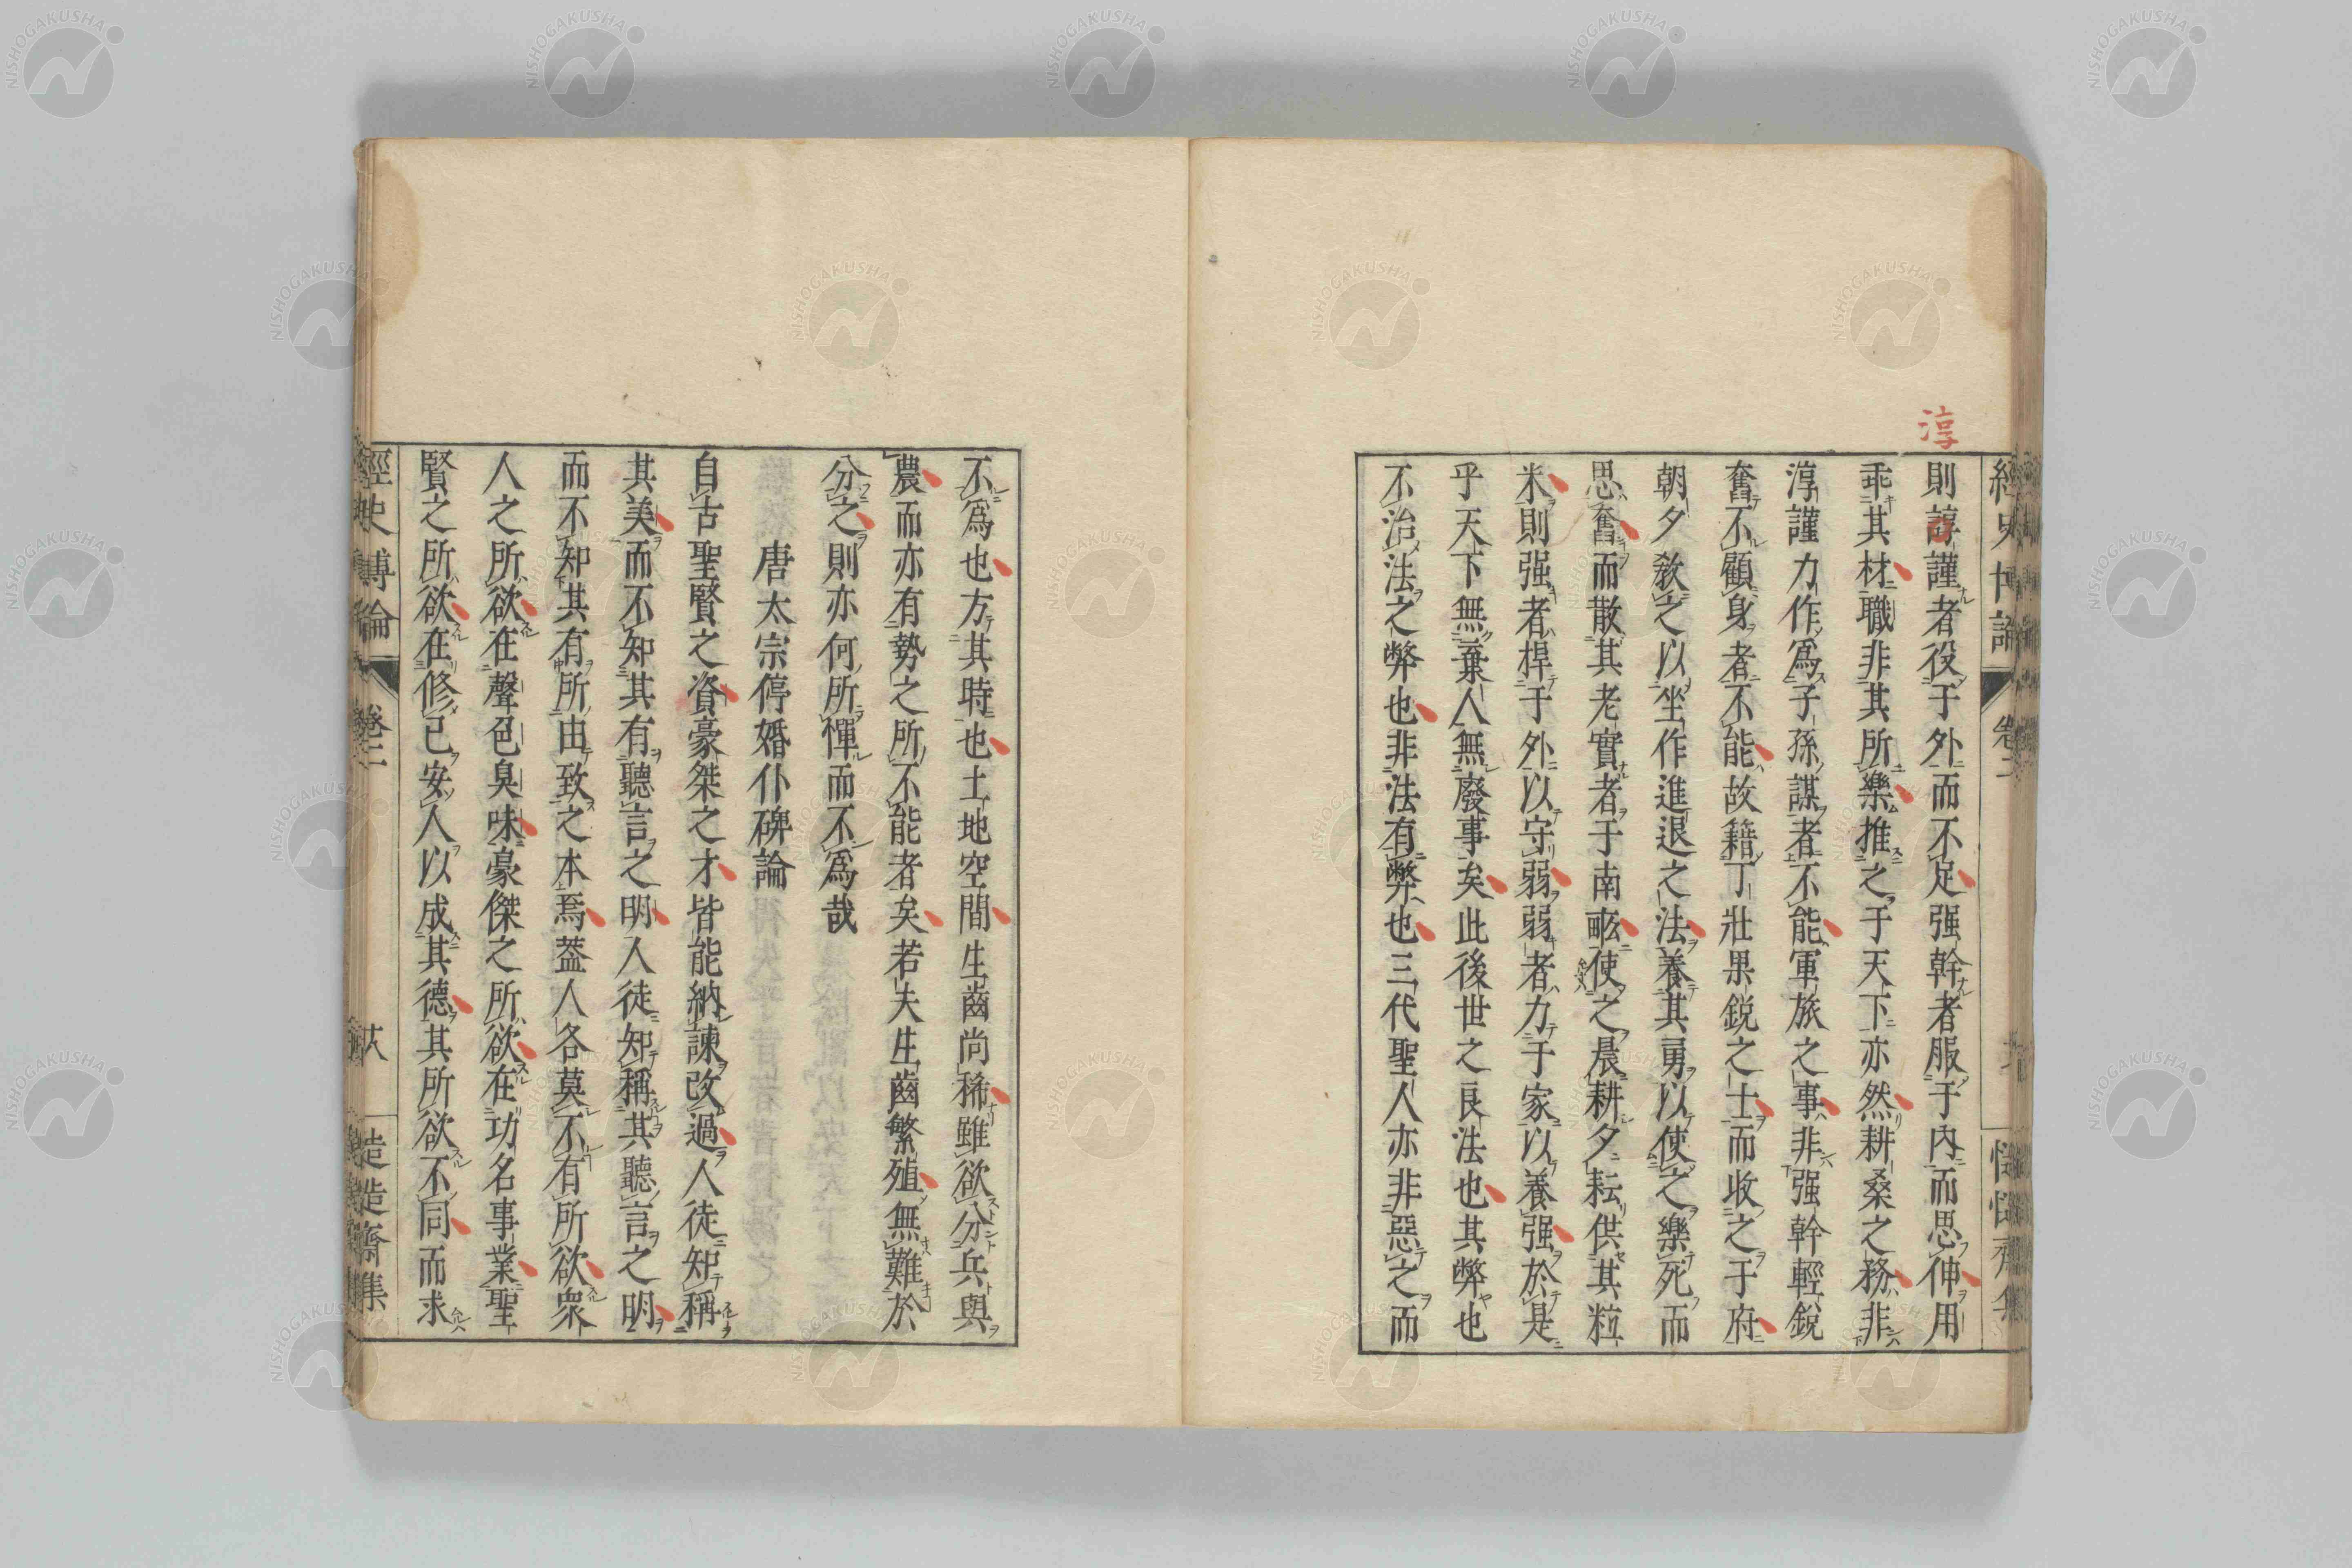 淳
則諄謹者役于外而不足强幹者服于內而思伸用
乖其材職非其所樂推之于天下亦然耕桑之務非
淳謹力作爲子孫謀者不能軍旅之事非强幹輕鋭
奮不顧身者不能故籍丁壯果鋭之士而收之于府
朝夕敎之以坐作進退之法養其勇以使之樂死而
思奮而散其老實者于南畝使之晨耕夕耘供其粒
米則强者桿于外以守弱弱者力于家以養强於是
乎天下無棄人無廢事矣此後世之良法也其弊也
不治法之弊也非法有弊也三代聖人亦非惡之而
不爲也方其時也土地空間生齒尚稀雖欲分兵與
農而亦有勢之所不能者矣若夫生齒繁殖無難於
分之則亦何所憚而不爲哉
唐太宗停婚仆碑論
自古聖賢之資豪桀之才皆能納諫改過人徒知稱
其美而不知其有聽言之明人徒知稱其聽言之明
而不知其有所由致之本焉葢人各莫不有所欲衆
人之所欲在聲色臭味豪傑之所欲在功名事業聖
賢之所欲在修己安人以成其德其所欲不同而求
經史博論
卷二
NISHOGAKUSHA